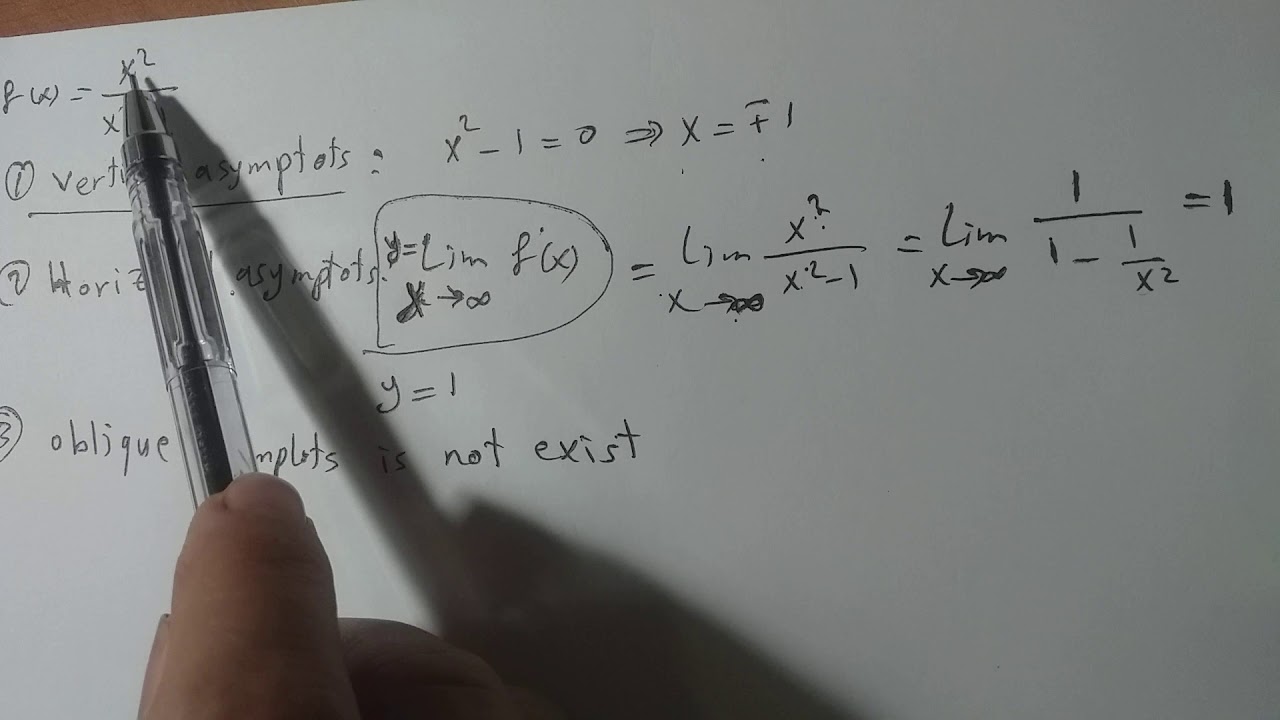 f(x) = x²
① asymptots : x² - 1 = 0 ⇒ x = ∓ 1
② asymptots. y = Lim x→∞ f(x) = Lim x→∞ x²/(x²-1) = Lim x→∞ 1/(1 - 1/x²) = 1
y = 1
③ oblique is not exist